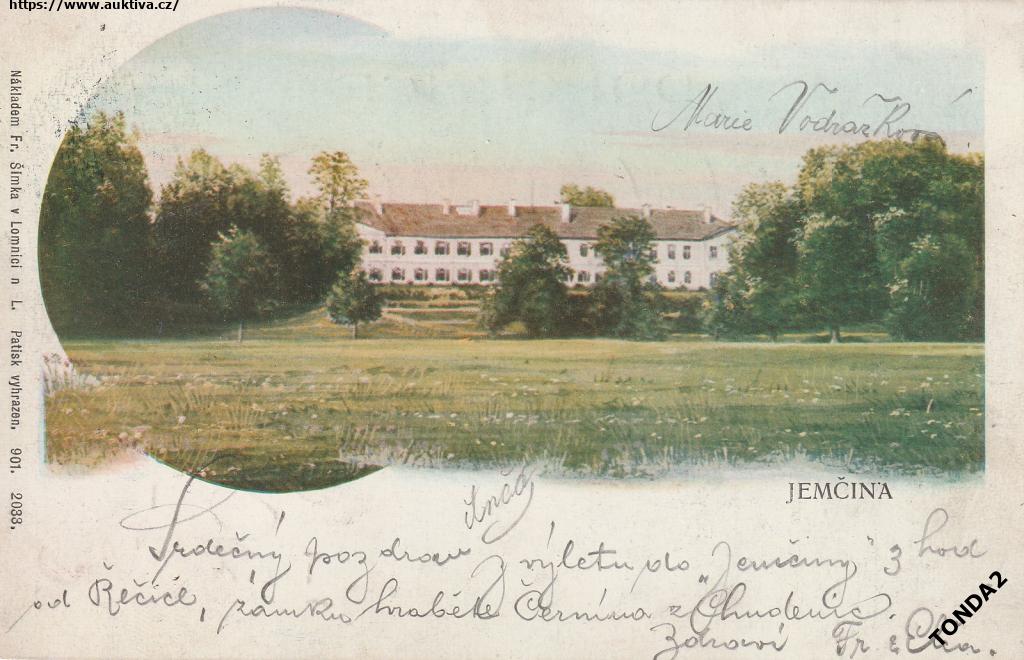 https://www.auktiva.cz/
Nákladem Fr. Šimka v Lomnici n L. Patisk vyhrazen. 901. 2038.
Marie Vodrážková
JEMČINA
Srdečný pozdrav z výletu do „Jemčiny" 3 hod
od Řečice, zámku hraběte Černína z Chudenic.
Zdraví Fr. z
TONDA2